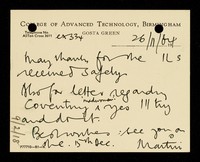 College of Advanced Technology, Birmingham
Gosta Green
Telephone No
Aston Cross 3611
ex 334
26/11/64
Many thanks for the
received safely
Also for letter regarding
Coventry & yes I'll try
and do it.
Best wishes & see you on
the 5th Dec. Martin